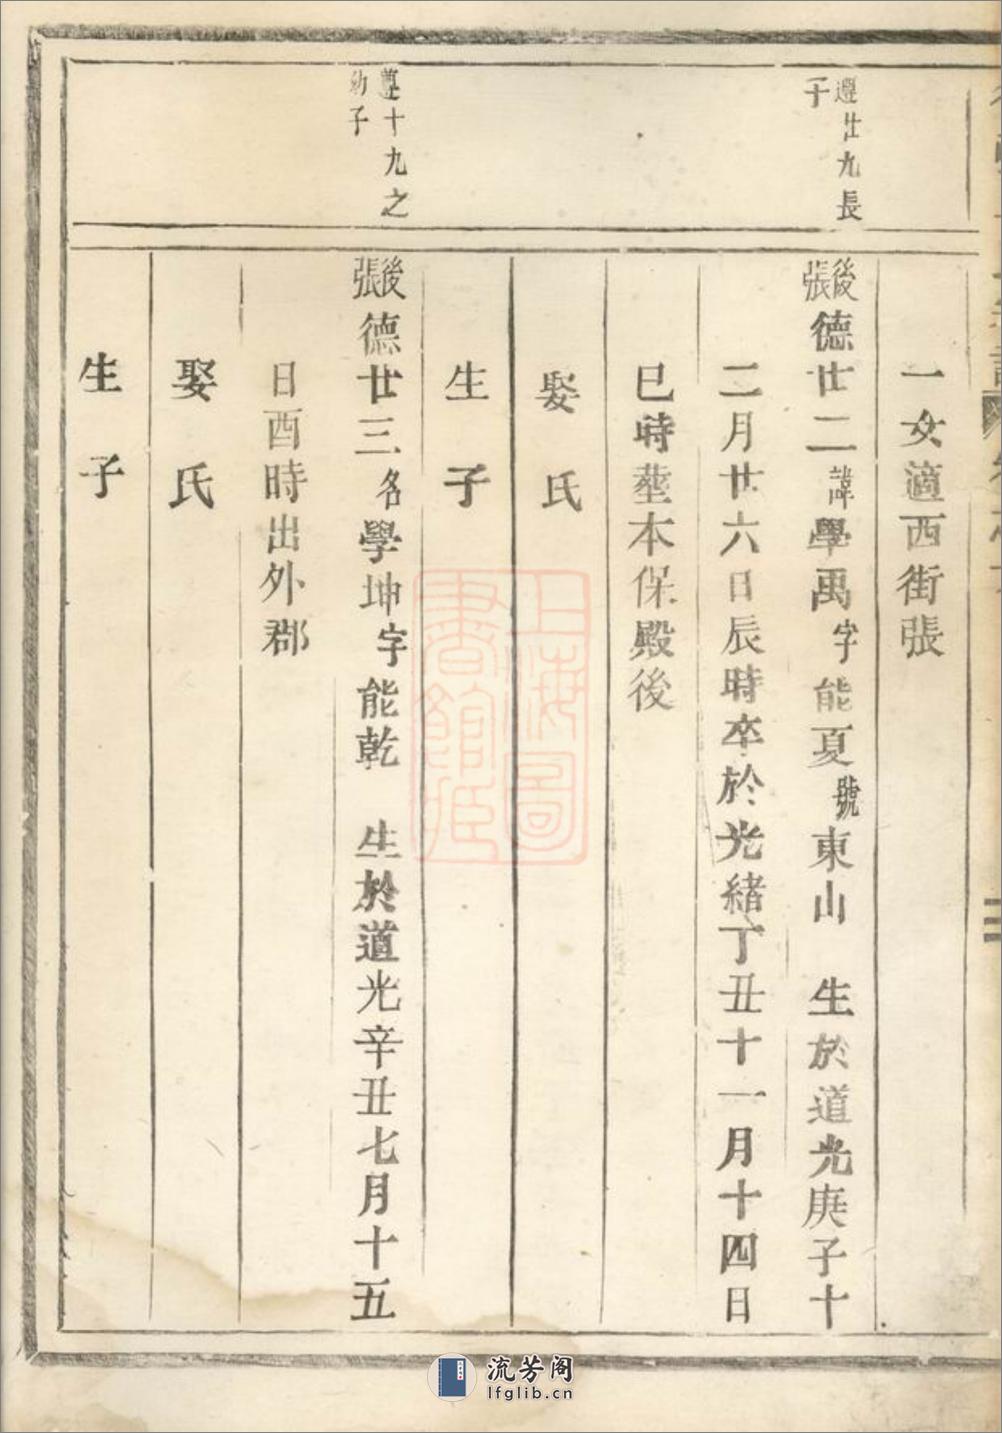 一女適西街張
遵廿九長
子
後張德廿二諱學禹字能夏號東山 生於道光庚子十
二月廿六日辰時卒於光緒丁丑十一月十四日
巳時塟本保殿後
娶氏
生子
遵十九之
幼子
後張德廿三名學坤字能乾 生於道光辛丑七月十五
日酉時出外郡
娶氏
生子
上海圖書館藏
流芳阁
lfglib.cn